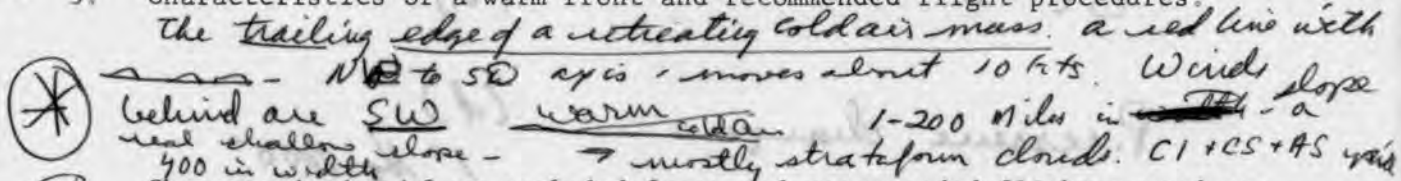 Characteristics of a warm front and recommended flight procedures.
The trailing edge of a retreating cold air mass. a red line with
to SE axis, moves about 10 kts. Winds
slope
behind are SW warm cold air 1-200 Miles in - a
real shallow slope - → mostly strataform clouds. CI + CS + AS
400 in width